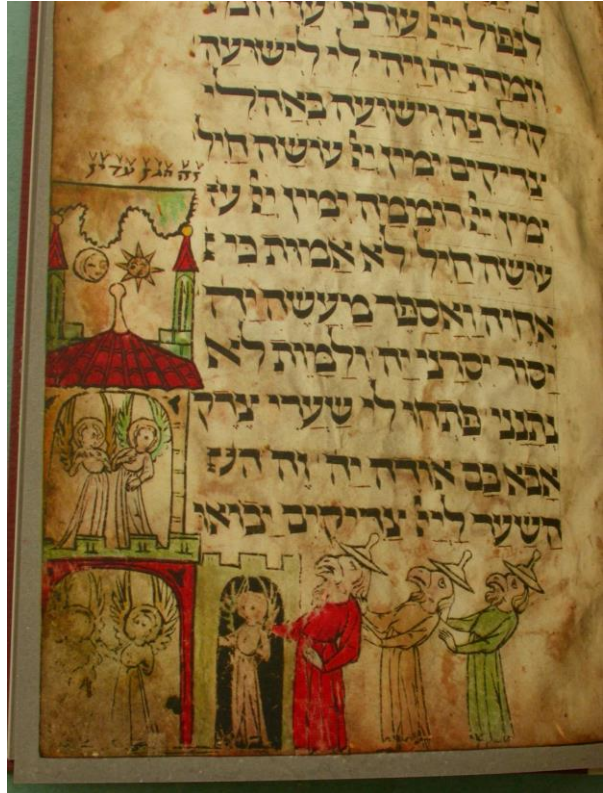 לנפול וייי עזרני עזי וזמ
וזמרת יה ויהי לי לישועה
קול רנה וישועה באהלי
צדיקים ימין ייי עושה חיל
ימין ייי רוממה ימין ייי עו
עושה חיל לא אמות כי א
אחיה ואספר מעשה יה
יסור יסרני יה ולמות לא
נתנני פתחו לי שערי צדק
אבא בם אודה יה זה הש
השער לייי צדיקים יבואו
זה הגן עדן